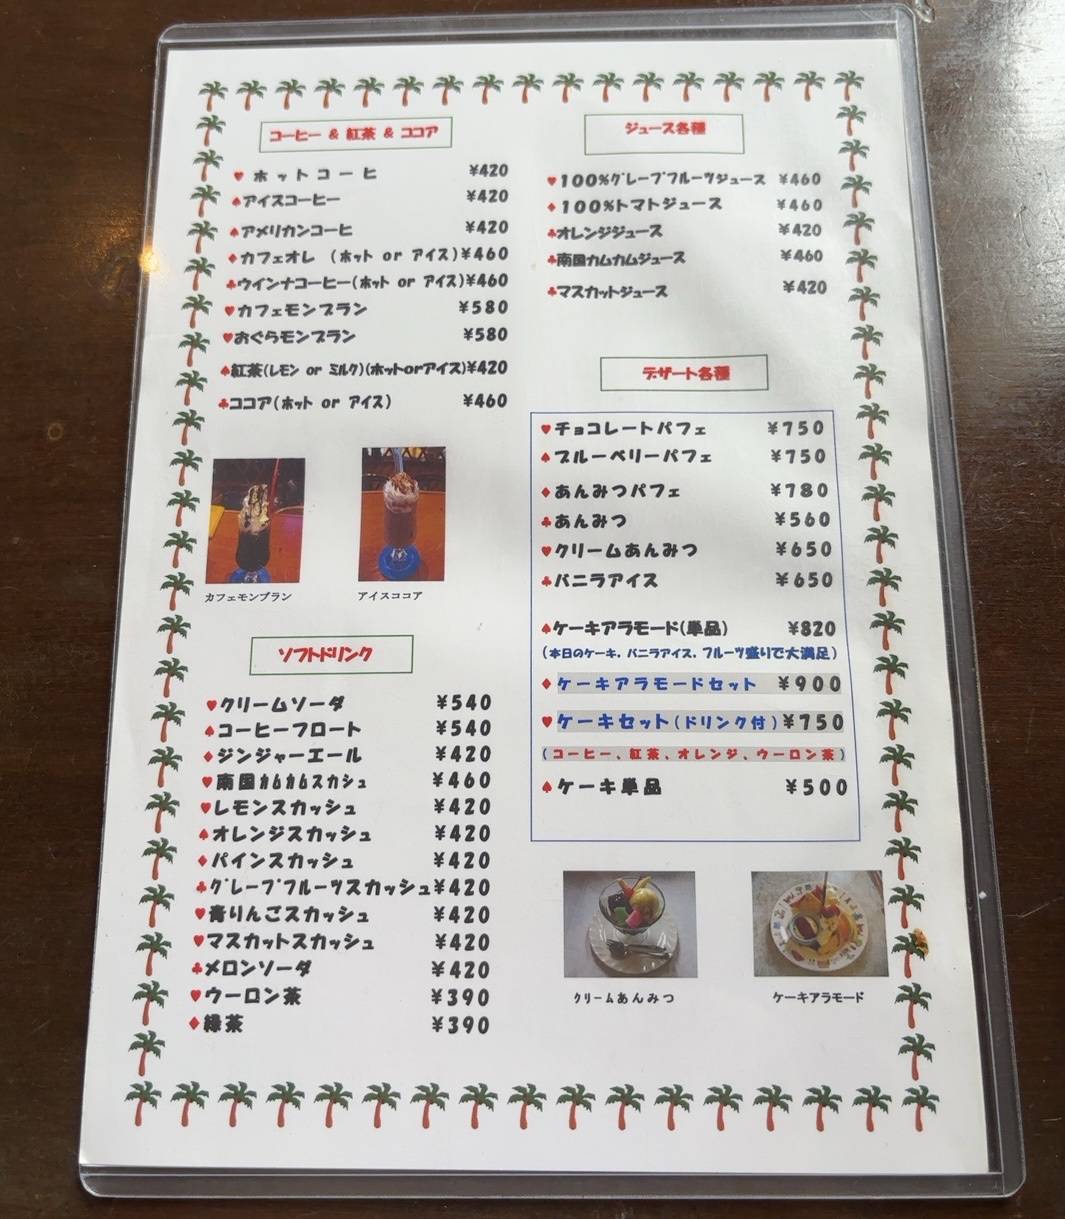 コーヒー & 紅茶 & ココア
♥ ホットコーヒ ¥420
♠アイスコーヒー ¥420
♠アメリカンコーヒ ¥420
♦カフェオレ (ホット or アイス)¥460
♣ウインナコーヒー(ホット or アイス)¥460
♥カフェモンブラン ¥580
♥おぐらモンブラン ¥580
♠紅茶(レモン or ミルク)(ホットorアイス)¥420
♣ココア(ホット or アイス) ¥460
カフェモンブラン
アイスココア
ソフトドリンク
♥クリームソーダ ¥540
♠コーヒーフロート ¥540
♦ジンジャーエール ¥420
♥南国カムカムスカシュ ¥460
♥レモンスカッシュ ¥420
♠オレンジスカッシュ ¥420
♦パインスカッシュ ¥420
♣グレープフルーツスカッシュ¥420
♥青りんごスカッシュ ¥420
♥マスカットスカッシュ ¥420
♣メロンソーダ ¥420
♥ウーロン茶 ¥390
♦緑茶 ¥390
ジュース各種
♥100%グレープフルーツジュース ¥460
♦100%トマトジュース ¥460
♣オレンジジュース ¥420
♣南国カムカムジュース ¥460
♣マスカットジュース ¥420
デザート各種
♥チョコレートパフェ ¥750
♠ブルーベリーパフェ ¥750
♦あんみつパフェ ¥780
♣あんみつ ¥560
♥クリームあんみつ ¥650
♣バニラアイス ¥650
♠ケーキアラモード(単品) ¥820
(本日のケーキ、バニラアイス、フルーツ盛りで大満足)
♦ケーキアラモードセット ¥900
♥ケーキセット(ドリンク付)¥750
(コーヒー、紅茶、オレンジ、ウーロン茶)
♠ケーキ単品 ¥500
クリームあんみつ
ケーキアラモード